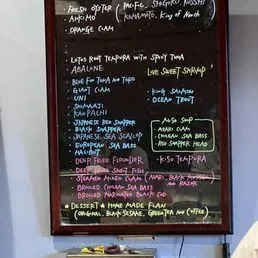 · FRESH OYSTER (PACIFIC, SHIGOKU, KUSSHI
ANKIMO KUMAMOTO, King of North)
· ORANGE CLAM
LOTUS ROOT TEMPURA WITH SPICY TUNA
ABALONE LIVE SWEET SHRIMP
· BLUE FIN TUNA AND TORO
· GIANT CLAM · KING SALMON
· UNI OCEAN TROUT
· SHIMAAJI
· KANPACHI
· JAPANESE RED SNAPPER
· BLACK SNAPPER
· JAPANESE SEA SCALLOP
· EUROPEAN SEA BASS
· HALIBUT
MISO SOUP
· ASARI CLAM
· CHILEAN SEA BASS
· RED SNAPPER HEAD
· DEEP FRIED FLOUNDER · KISU TEMPURA
· DEEP FRIED SMELT FISH
· STEAMED MIXED CLAM (ASARI, BLACK MUSSEL
AND RAZOR)
· BROILED CHILEAN SEA BASS
· BROILED MARINATED BLACK COD
★ DESSERT ★ HOME MADE FLAN
(ORIGINAL, BLACK SESAME, GREEN TEA AND COFFEE)